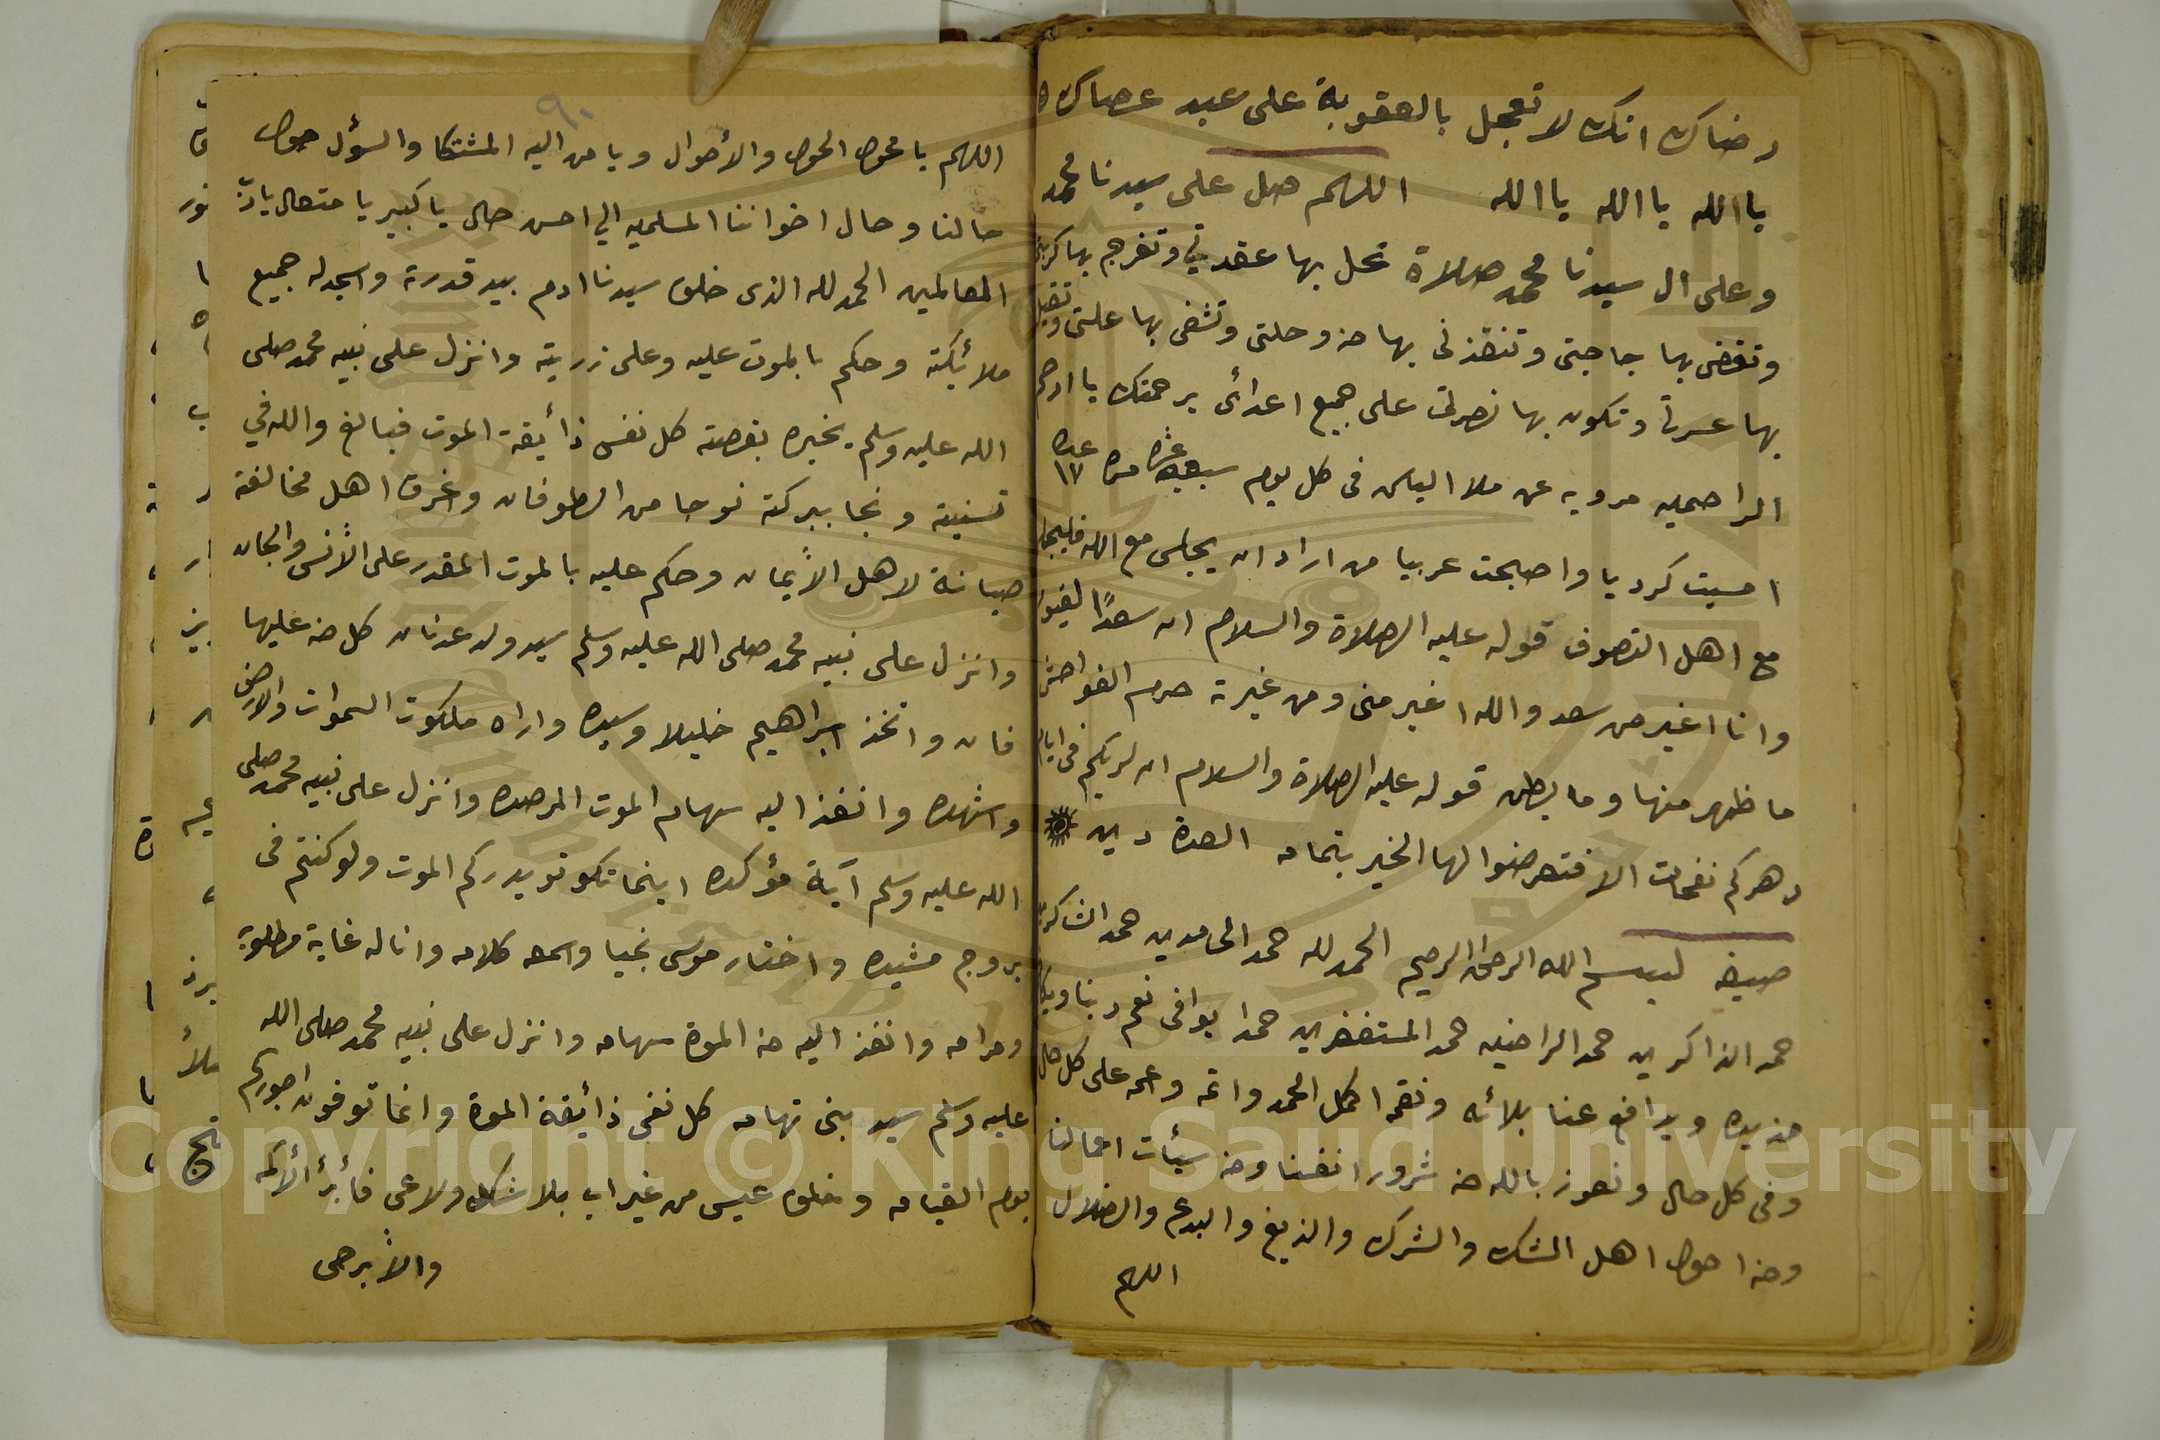 رضاك انك لا تعجل بالعقوبة على عبد عصاك
يا الله يا الله يا الله اللهم صل على سيدنا محمد
وعلى ال سيدنا محمد صلاة تحل بها عقدتي وتفرج بها كربتي
وتقضى بها حاجتى وتنقذنى بها من وحلتى وتشفى بها علتى وتقيل
بها عسرتى وتكون بها نصرتى على جميع اعدائى برحمتك يا ارحم
الراحمين مرويه عن ملا الياس فى كل يوم سبعة عشره مره عدد ١٧
امسيت كرديا واصبحت عربيا من اراد ان يجلس مع الله فليجلس
مع اهل التصوف قوله عليه الصلاة والسلام ان سعدًا لغيور
وانا اغير من سعد والله اغير منى ومن غيرته حرم الفواحش
ما ظهر منها وما بطن قوله عليه الصلاة والسلام ان لربكم فى ايام
دهركم نفحات الا فتعرضوا لها الخير بتمامه
صيغه بسم الله الرحمن الرحيم الحمد لله حمد الحامدين حمد الشاكرين
حمد الذاكرين حمد الراضين حمد المستغفرين حمدا يوافى نعم ربنا ويكافى
مزيده ويدافع عنا بلائه ونقمه اكمل الحمد واتمه واعمه على كل حال
وفى كل حال ونعوز بالله من شرور انفسنا ومن سيئات اعمالنا
ومن احوال اهل الشك والشرك والزيغ والبدع والضلال
اللهم
٩٠
اللهم يا محول الحول والأحوال ويا من اليه المشتكا والسؤل حول
حالنا وحال اخواننا المسلمين الي احسن حال يا كبير يا متعال يا رب
العالمين الحمد لله الذى خلق سيدنا ادم بيد قدرته واسجد له جميع
ملائكته وحكم بالموت عليه وعلى زريته وانزل على نبيه محمد صلى
الله عليه وسلم يخبره بقصته كل نفس ذائيقة الموت فبالغ والله في
تسنيته ونجا ببركته نوحا من الطوفان واغرق اهل مخالفة
صيانة لاهل الأيمان وحكم عليه بالموت المقدر على الأنس والجان
وانزل على نبيه محمد صلى الله عليه وسلم سيد ولد عدنان كل من عليها
فان واتخذ ابراهيم خليلا وسيده واراه ملكوت السموات والارض
واشهده وانفذ اليه سهام الموت المرصده وانزل على نبيه محمد صلى
الله عليه وسلم آية مؤكده اينما تكونو يدرككم الموت ولو كنتم فى
بروج مشيده واختار موسى نجيا واسمعه كلامه وانا له غاية مطلوبه
ومرامه وانفذ اليه من الموة سهامه وانزل على نبيه محمد صلى الله
عليه وسلم سيد بنى تهامه كل نفس ذائيقة الموة وانما توفون اجوركم
يوم القيامه وخلق عيسى من غير اب بلا شك ولا عى فأبرأ ألاكمه
والأبرصى
Copyright © King Saud University